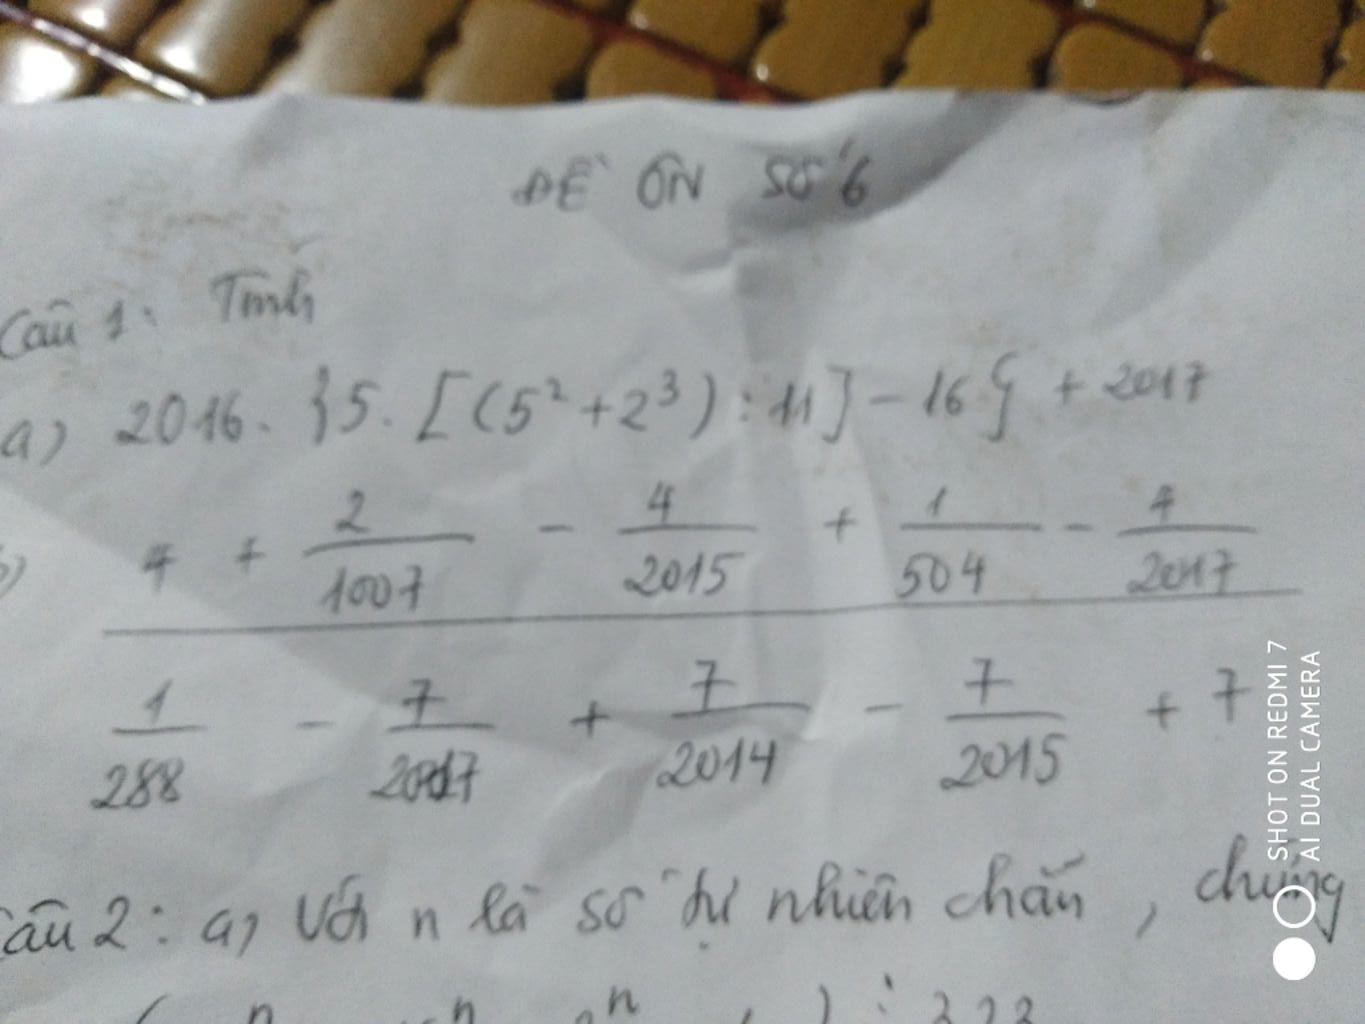 ĐỀ ÔN SỐ 6
Câu 1: Tính
a) 2016. {5. [(5² + 2³) : 11] - 16} + 2017
b) 4 + 2/1007 - 4/2015 + 1/504 - 4/2017
1/288 - 7/2017 + 7/2014 - 7/2015 + 7
Câu 2: a, Với n là số tự nhiên chẵn, chứng
n n n ) : 323
SHOT ON REDMI 7
AI DUAL CAMERA